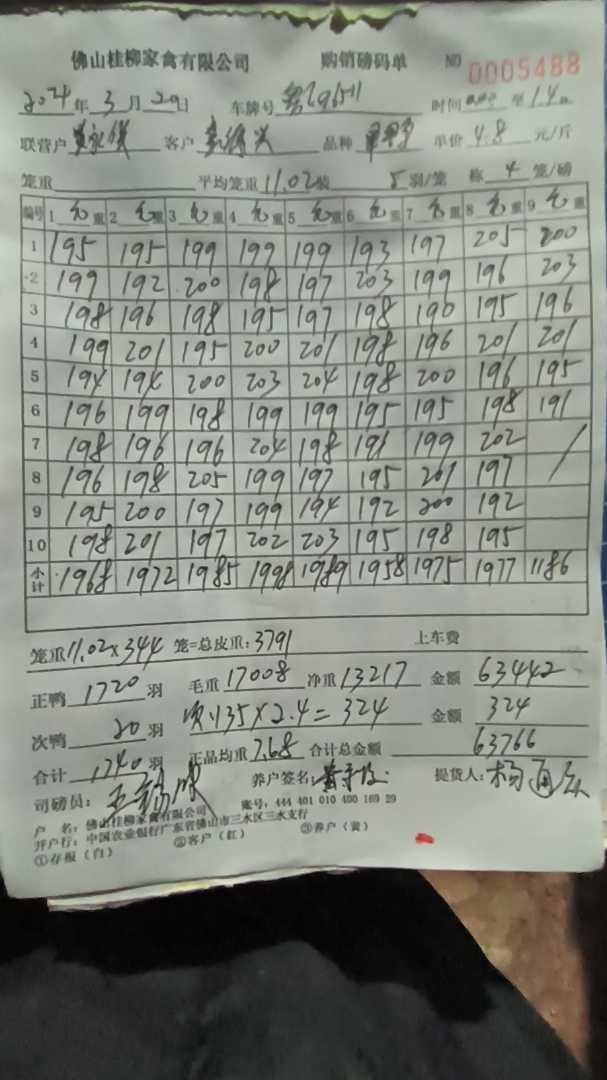 佛山桂柳家禽有限公司 购销磅码单 NO 0005488
2024年3月29日 车牌号 时间 至 1.4
联营户 客户 品种 单价 4.8 元/斤
笼重 平均笼重 11.02 装 5 羽/笼 称 4 笼/磅
编号 1 毛重 2 毛重 3 毛重 4 毛重 5 毛重 6 毛重 7 毛重 8 毛重 9 毛重
1 195 195 199 199 199 193 197 205 200
2 199 192 200 198 197 203 199 196 203
3 198 196 198 195 197 198 190 195 196
4 199 201 195 200 201 198 196 201 201
5 194 194 200 203 204 198 200 196 195
6 196 199 198 199 199 195 195 198 191
7 198 196 196 204 198 191 199 202 /
8 196 198 205 199 197 195 201 197
9 195 200 197 199 194 192 200 192
10 198 201 197 202 203 195 198 195
小计 1968 1972 1985 1998 1989 1958 1975 1977 1186
笼重 11.02×344 笼=总皮重:3791 上车费
正鸭 1720 羽 毛重 17008 净重 13217 金额 63442
次鸭 20 羽 次:135×2.4=324 金额 324
合计 1740 羽 正品均重 7.68 合计总金额 63766
司磅员: 养户签名: 提货人:
户 名:佛山桂柳家禽有限公司 账号:444 401 010 400 169 29
开户行:中国农业银行广东省佛山市三水区三水支行
①存根(白) ②客户(红) ③养户(黄)